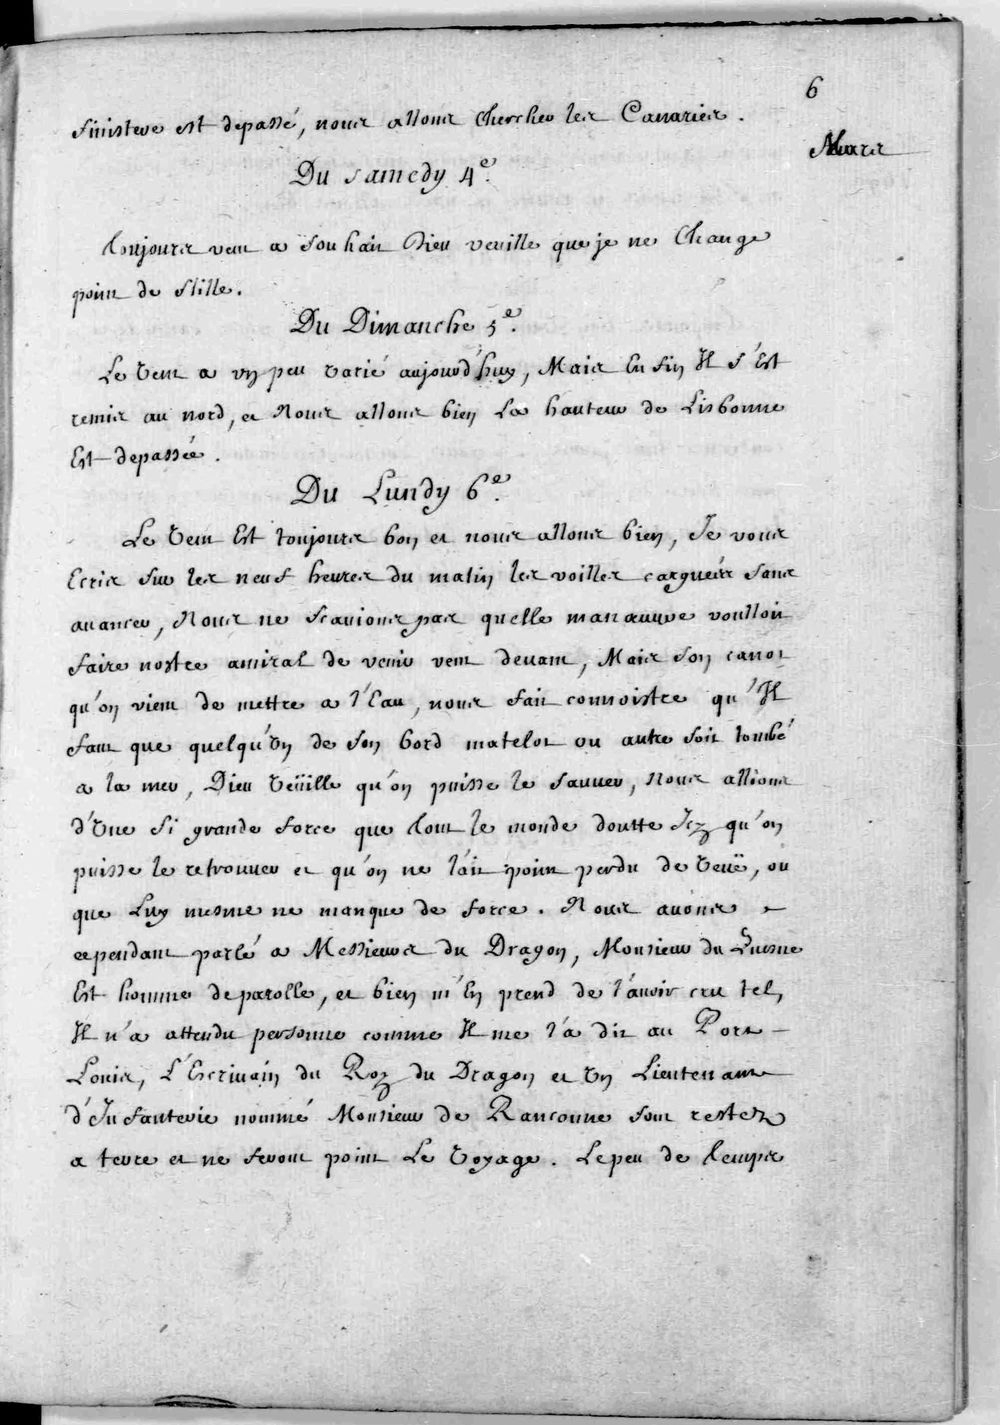 6
finistere est depassé, nous allons chercher les Canaries.
Mars
Du samedy 4e.
Toujours vent a souhait Dieu veuille que je ne change
point de stille.
Du Dimanche 5e.
Le vent a vn peu varié aujourd'huy, Mais En fin Il s'Est
remis au nord, et Nous allons bien La hauteur de Lisbonne
Est depassée.
Du Lundy 6e.
Le vent Est toujours bon et nous allons bien, Je vous
Ecris sur les neuf heures du matin les voilles carguéés sans
auancer, Nous ne scauions pas quelle manauure voulloit
faire nostre amiral de venir vent deuant, Mais son canot
qu'on vient de mettre a l'Eau, nous fait connoistre qu'Il
faut que quelqu'vn de son bord matelot ou autre soit tombé
a la mer, Dieu veüille qu'on puisse le sauuer, Nous allions
d'vne si grande force que tout le monde doutte Icy qu'on
puisse le retrouuer et qu'on ne l'ait point perdu de veuë, ou
que Luy mesme ne manque de force. Nous auons
cependant parlé a Messieurs du Dragon, Monsieur du Quesne
Est homme de parolle, et bien m'En prend de l'auoir cru tel,
Il n'a attendu personne comme Il me l'a dit au Port
Louis, L'Escriuain du Roy du Dragon et vn Lieutenant
d'Infanterie nommé Monsieur de Ranconne sont restez
a terre et ne feront point Le voyage. Le peu de temps